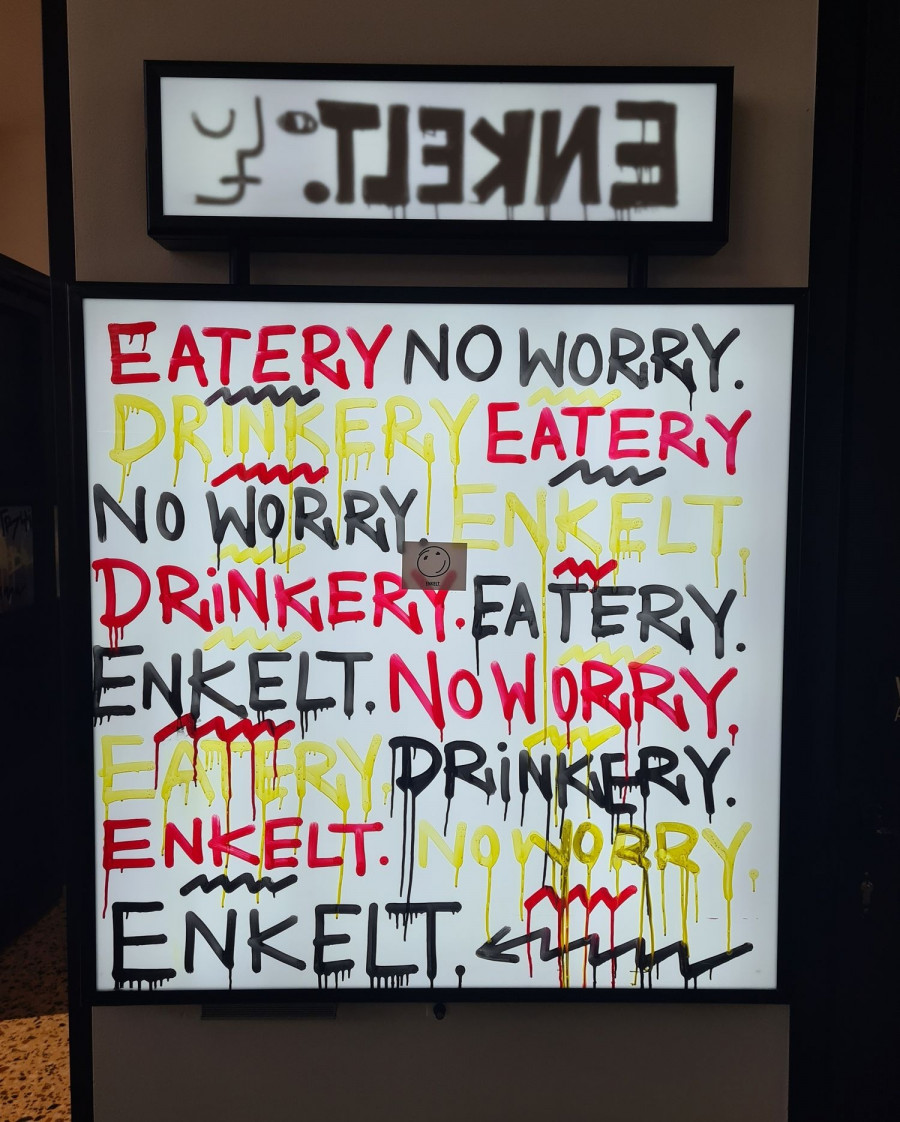 ENKELT.
EATERY NO WORRY.
DRINKERY EATERY
NO WORRY ENKELT.
DRiNKERY. EATERY.
ENKELT. NO WORRY.
EATERY. DRiNKERY.
ENKELT. NO WORRY.
ENKELT.
ENKELT